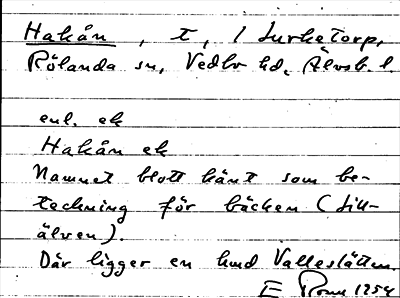 Hakån, t, / Lurketorp,
Rölanda sn, Vedbo hd, Älvsb. l.
enl. ek
Hakån ek
Namnet blott känt som be-
teckning för bäcken (Lill-
älven).
Där ligger en hmd Valleslätten.
E Ronn 1954